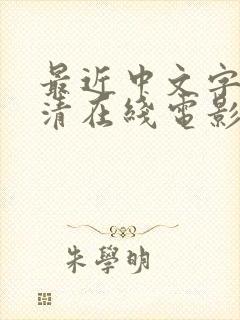 最近中文字
清在綫電影
朱學明